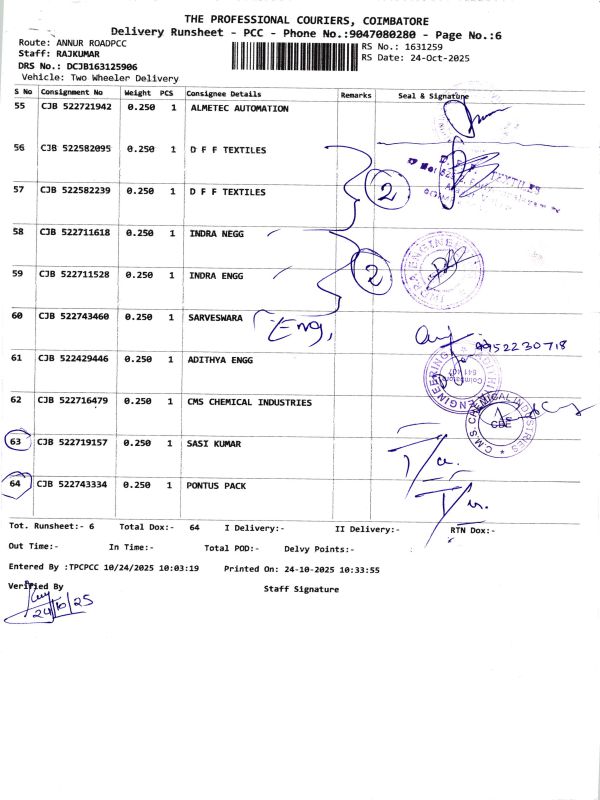 THE PROFESSIONAL COURIERS, COIMBATORE
Delivery Runsheet - PCC - Phone No.:9047080280 - Page No.:6
Route: ANNUR ROADPCC RS No.: 1631259
Staff: RAJKUMAR RS Date: 24-Oct-2025
DRS No.: DCJB163125906
Vehicle: Two Wheeler Delivery
S No Consignment No Weight PCS Consignee Details Remarks Seal & Signature
55 CJB 522721942 0.250 1 ALMETEC AUTOMATION
56 CJB 522582095 0.250 1 D F F TEXTILES
57 CJB 522582239 0.250 1 D F F TEXTILES 2 TEXTILES
58 CJB 522711618 0.250 1 INDRA NEGG
59 CJB 522711528 0.250 1 INDRA ENGG 2 INDRA ENGINEE
60 CJB 522743460 0.250 1 SARVESWARA Eng, 9952230718
61 CJB 522429446 0.250 1 ADITHYA ENGG ENGINEERING Coimbatore 641 407
62 CJB 522716479 0.250 1 CMS CHEMICAL INDUSTRIES C.M.S. CHEMICAL INDUSTRIES CBE
63 CJB 522719157 0.250 1 SASI KUMAR
64 CJB 522743334 0.250 1 PONTUS PACK
Tot. Runsheet:- 6 Total Dox:- 64 I Delivery:- II Delivery:- RTN Dox:-
Out Time:- In Time:- Total POD:- Delvy Points:-
Entered By :TPCPCC 10/24/2025 10:03:19 Printed On: 24-10-2025 10:33:55
Verified By Staff Signature
24/10/25